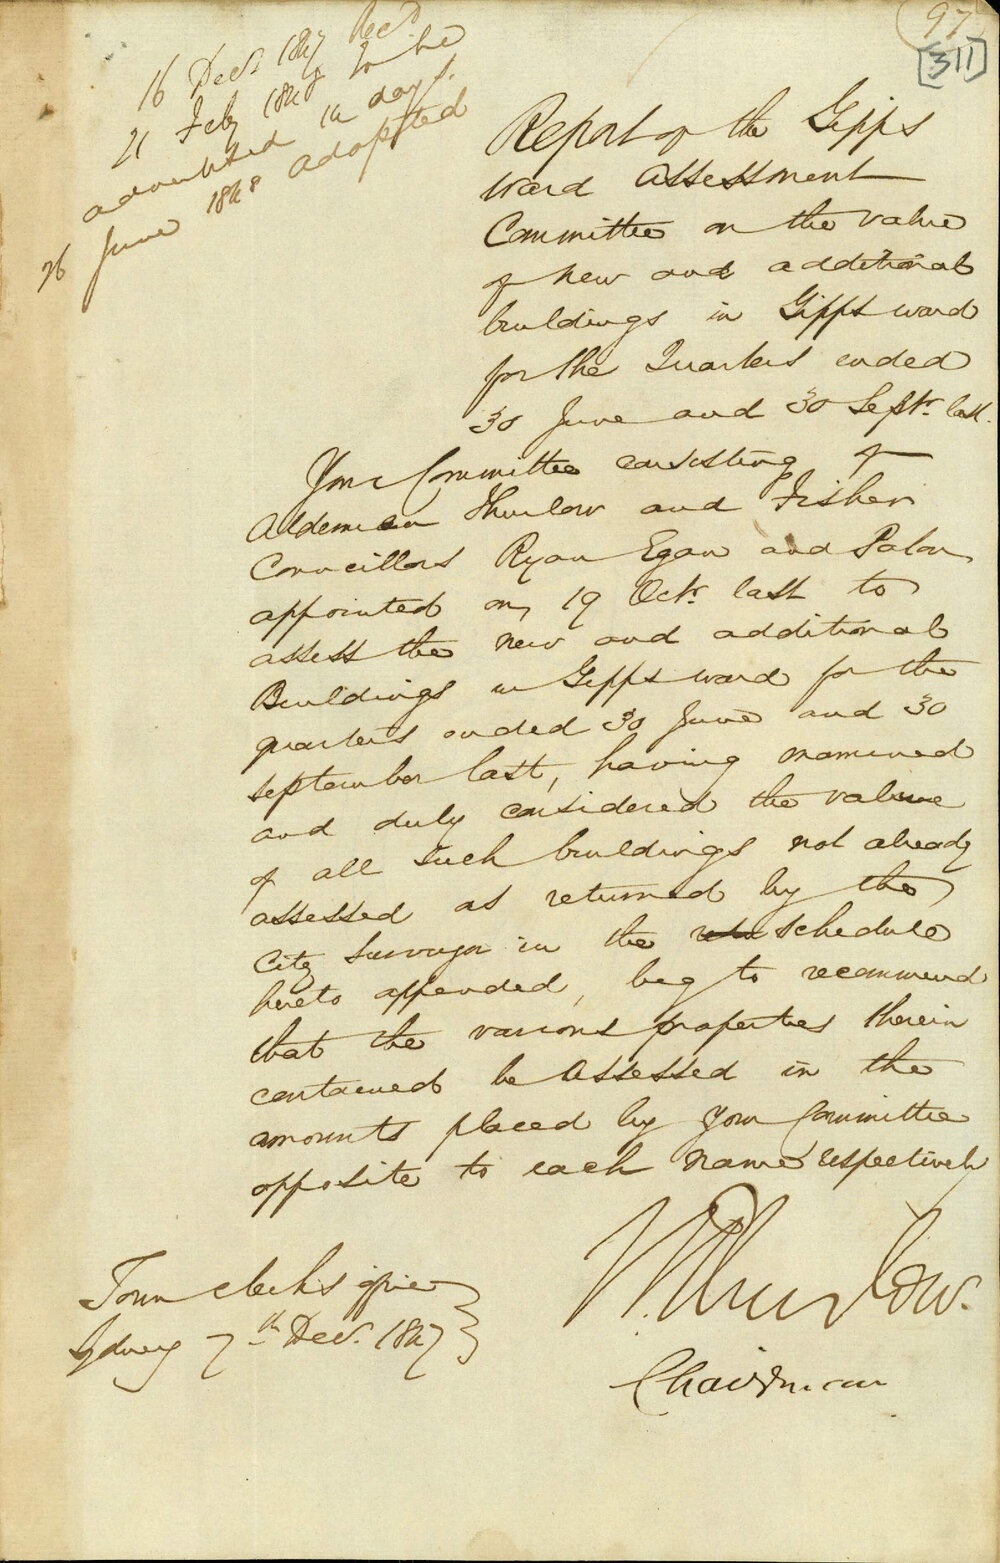 97
[311]
16 Decr. 1847 Recd.
21 Feby 1848 to be
advertised 14 days.
26 June 1848 adopted
Report of the Gipps
Ward Assessment
Committee on the value
of new and additional
buildings in Gipps ward
for the Quarters ended
30 June and 30 Septr. last.
Your Committee consisting of
Aldermen Thurlow and Fisher
Councillors Ryan Egan and Paton
appointed on 19 Octr. last to
assess the new and additional
Buildings in Gipps ward for the
quarters ended 30 June and 30
September last, having examined
and duly considered the value
of all such buildings not already
assessed as returned by the
City Surveyor in the schedule
hereto appended, beg to recommend
that the various properties therein
contained be Assessed in the
amounts placed by your Committee
opposite to each name respectively
W Thurlow.
Chairman
Town clerk's office
Sydney 7th Decr. 1847